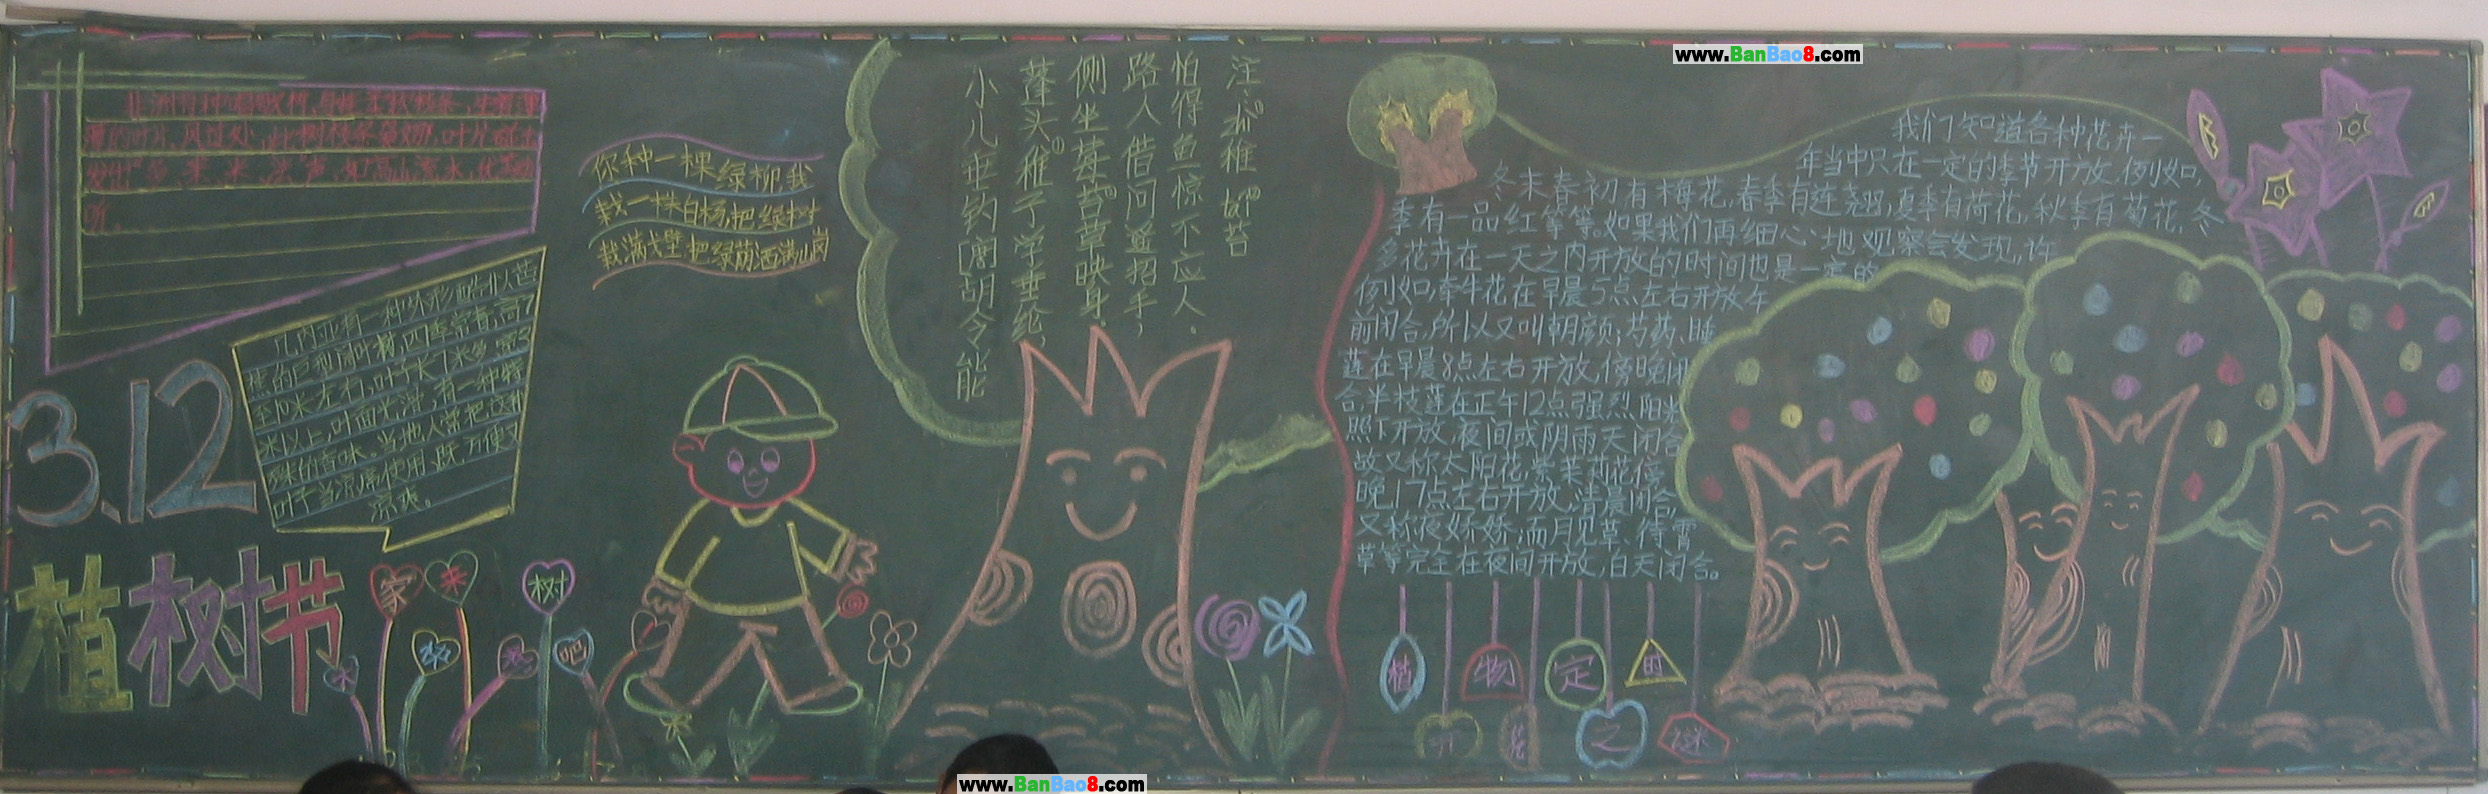 www.BanBao8.com
3.12
植树节
大家快来种树吧
你种一棵绿柳,我
栽一株白杨,把绿树
栽满戈壁,把绿荫洒满山岗
几内亚有一种外形酷似芭
蕉的巨型阔叶树,四季常青,高7
至10米左右,叶子长7米多,宽3
米以上,叶面光滑,有一种特
殊的香味。当地人常把这种
叶子当凉席使用,既方便又
凉爽。
小儿垂钓 [唐]胡令能
蓬头稚子学垂纶,
侧坐莓苔草映身。
路人借问遥招手,
怕得鱼惊不应人。
我们知道各种花卉一
年当中只在一定的季节开放.例如,
冬末春初有梅花,春季有连翘,夏季有荷花,秋季有菊花,冬
季有一品红等等。如果我们再细心地观察会发现,许
多花卉在一天之内开放的时间也是一定的
例如,牵牛花在早晨5点左右开放,午
前闭合,所以又叫朝颜;芍药、睡
莲在早晨8点左右开放,傍晚闭
合,半枝莲在正午12点强烈阳光
照下开放,夜间或阴雨天闭合
故又称太阳花,紫茉莉花傍
晚17点左右开放,清晨闭合,
又称夜娇娇,而月见草、待霄
草等完全在夜间开放,白天闭合。
植物定时
开花之谜
www.BanBao8.com